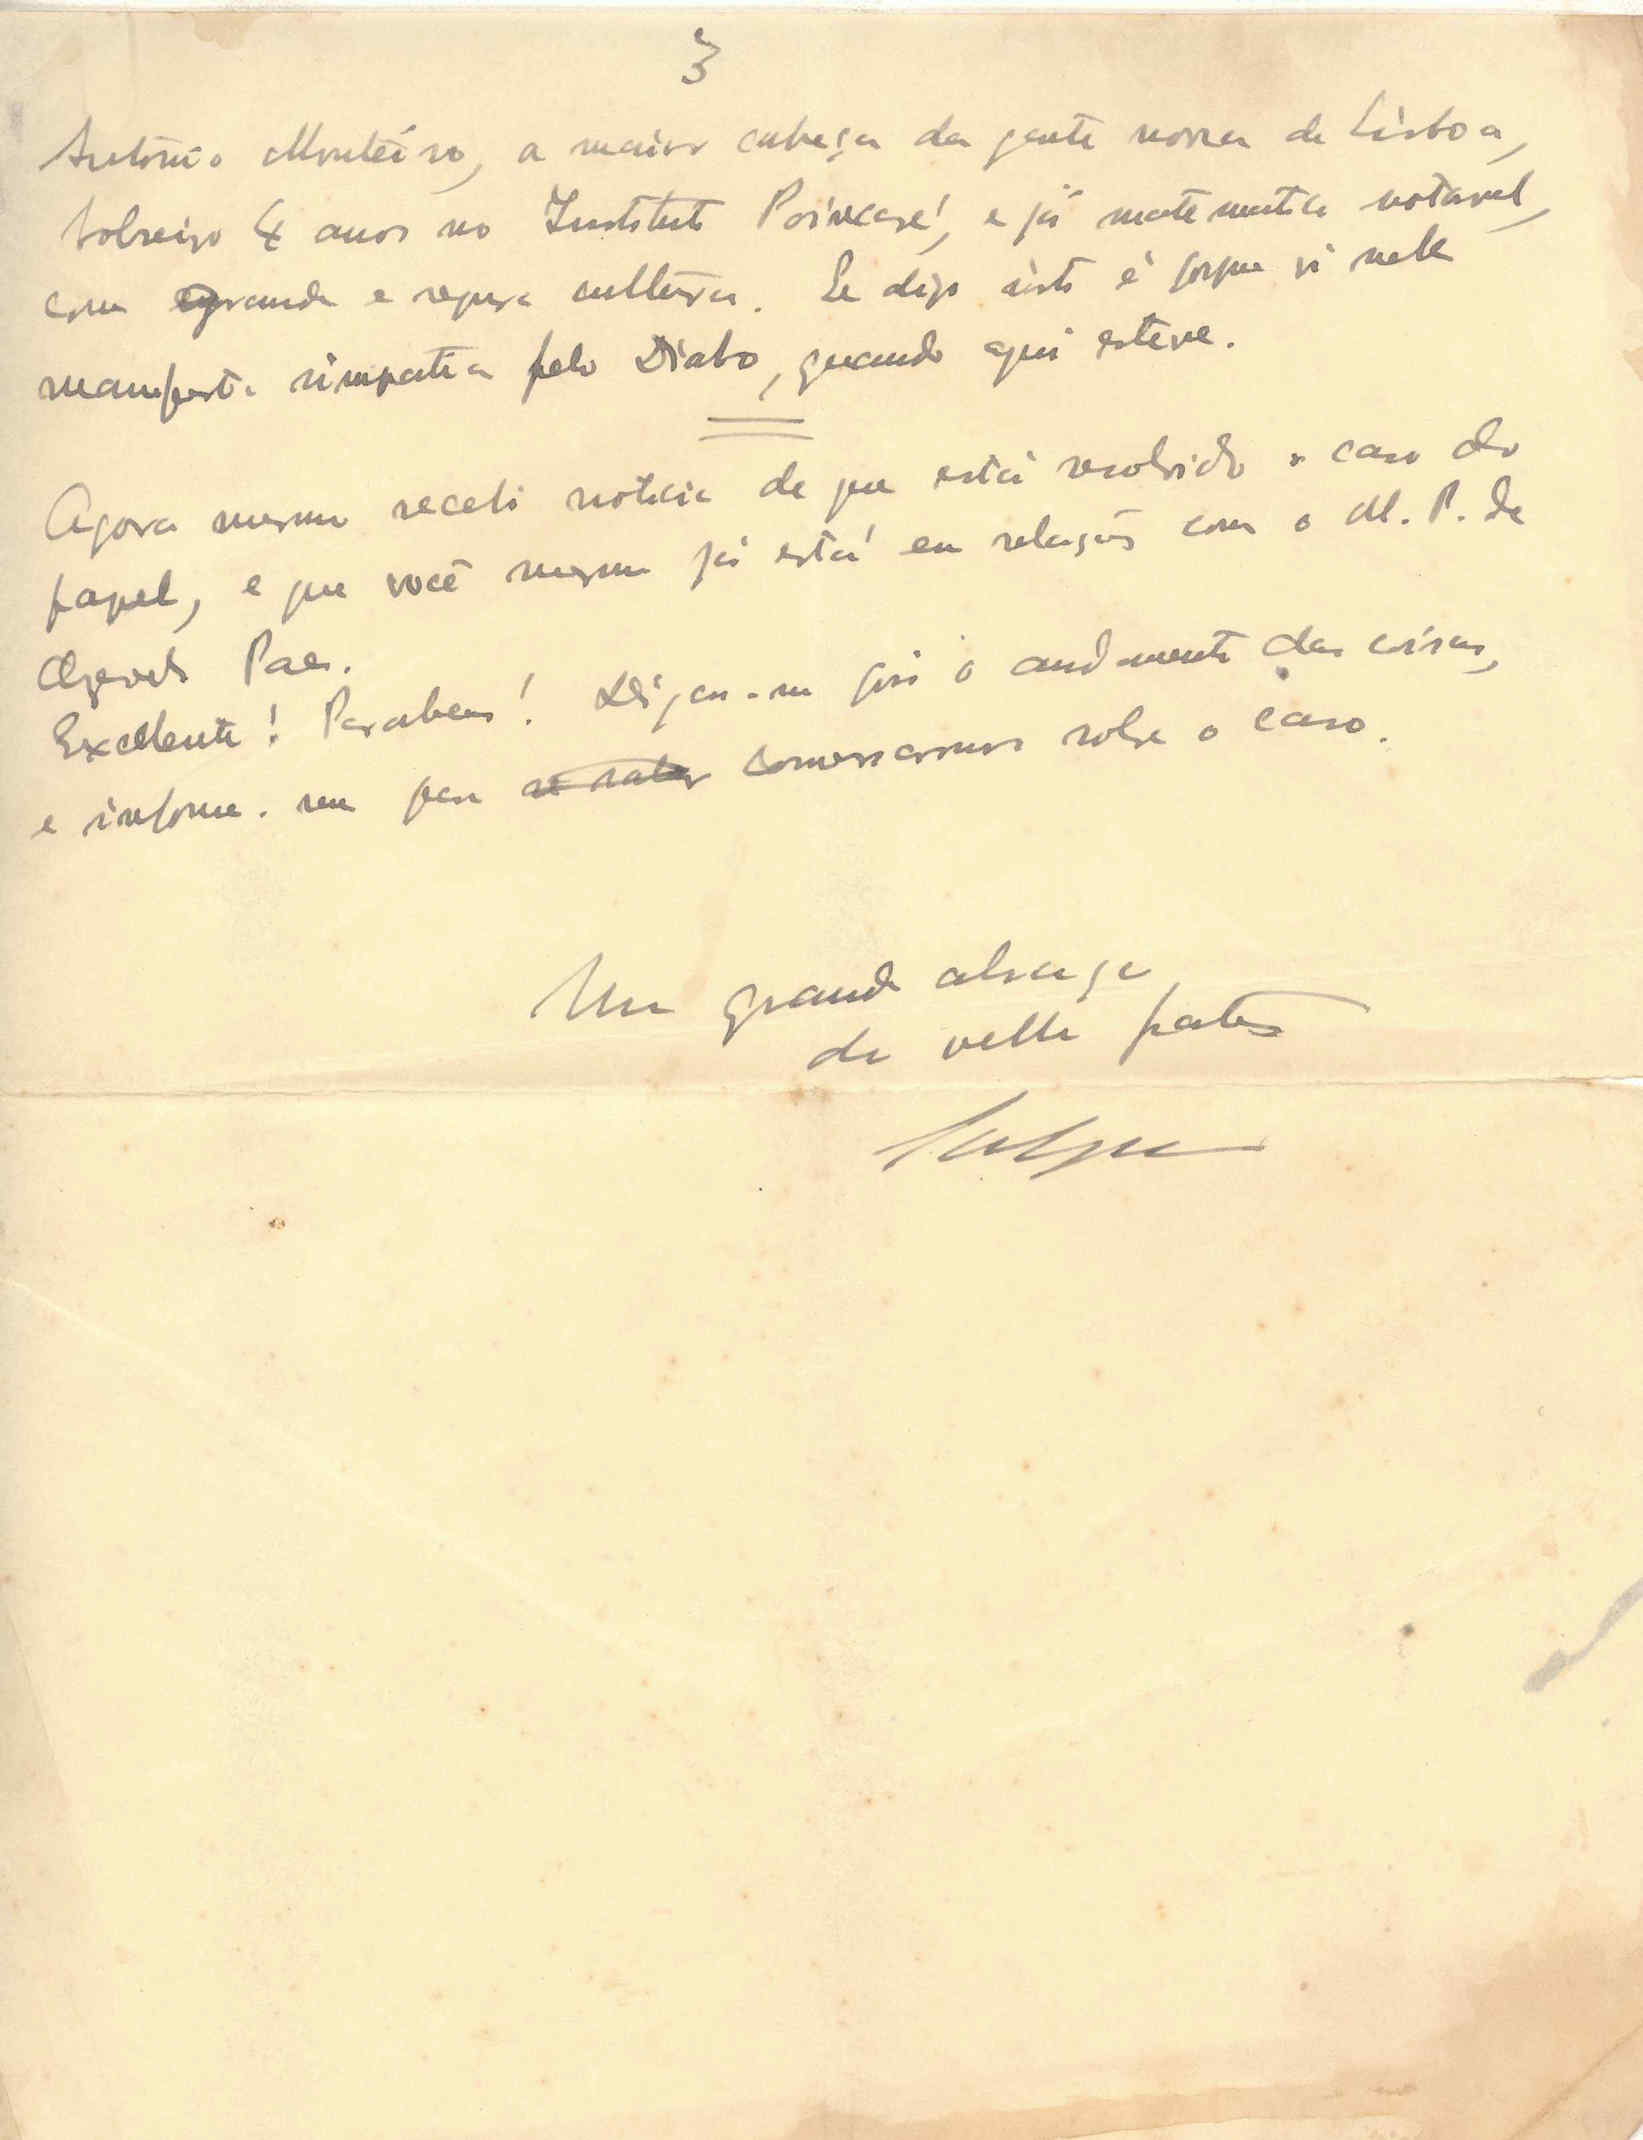 3
António Monteiro, a maior cabeça da gente nova de Lisboa,
4 anos no Instituto Poincaré, e já matematico notavel,
com grande e segura cultura. Se digo isto é porque vi nele
manifesta simpatia pelo Diabo, quando aqui esteve.
Agora mesmo recebi noticia de que está resolvido o caso do
papel, e que você mesmo já está em relações com o M. P. de
Azevedo Paes.
Excellente! Parabens! Diga-me pois o andamento das coisas,
e informe-me para conversarmos sobre o caso.
Um grande abraço
do velho